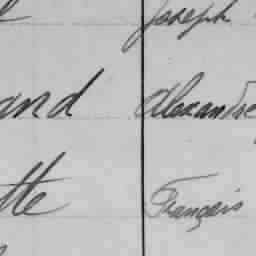 Joseph
and Alexandre
tte François